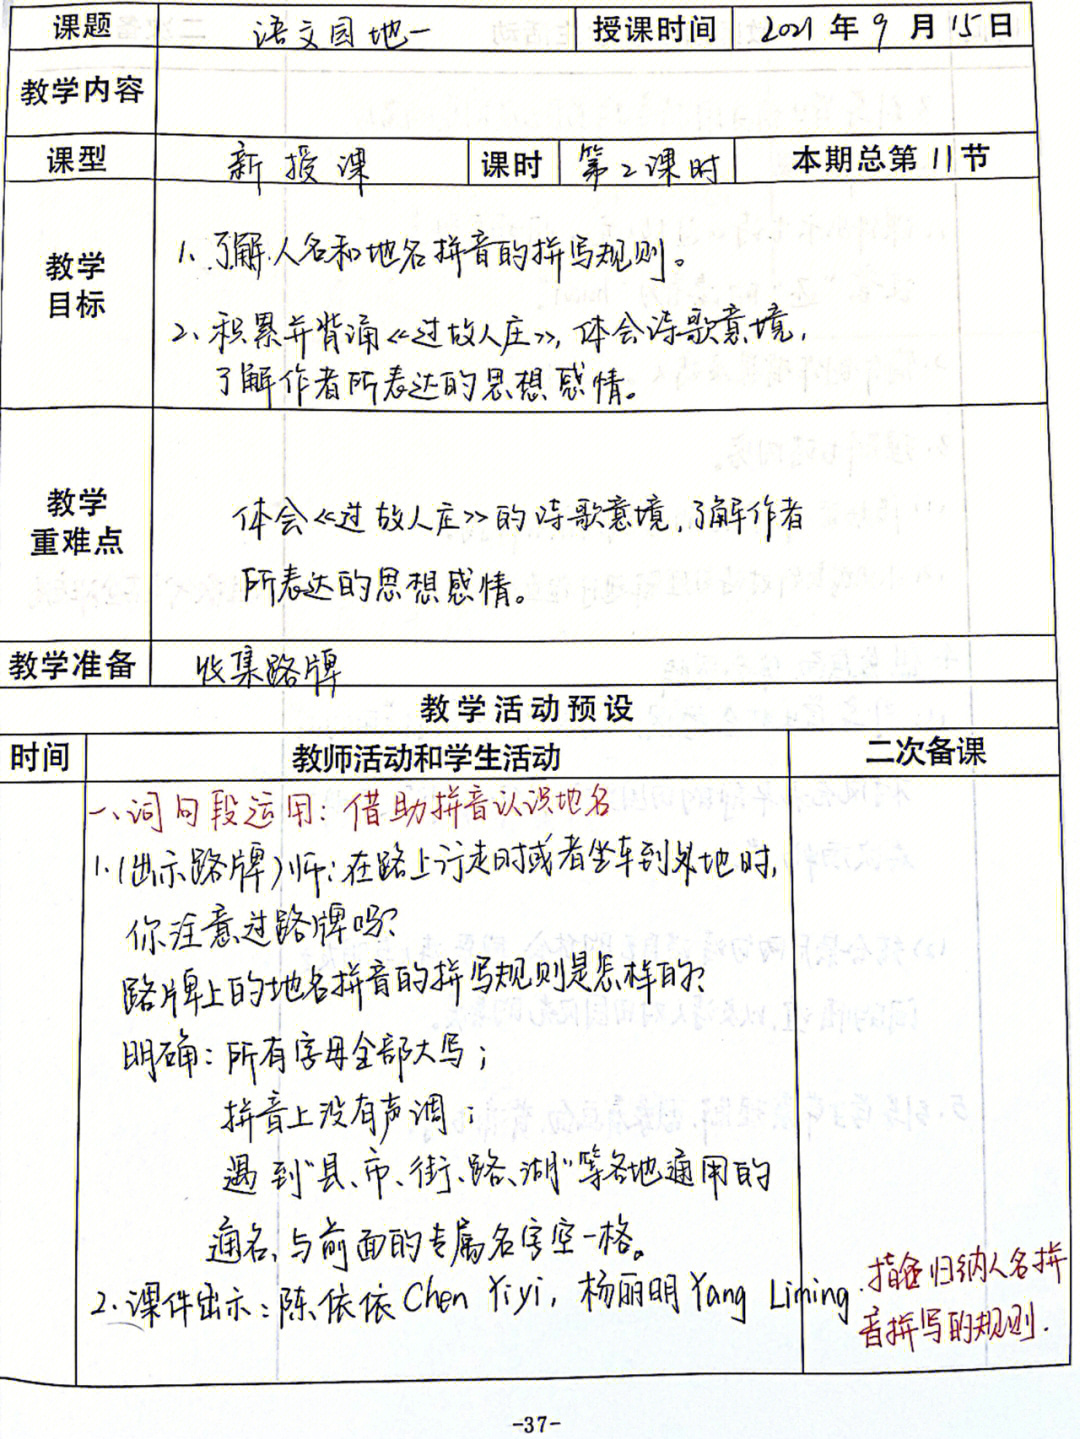 课题 语文园地一 授课时间 2021年9月15日
教学内容
课型 新授课 课时 第2课时 本期总第11节
教学
目标
1、了解人名和地名拼音的拼写规则。
2、积累并背诵《过故人庄》,体会诗歌意境,
了解作者所表达的思想感情。
教学
重难点
体会《过故人庄》的诗歌意境,了解作者
所表达的思想感情。
教学准备 收集路牌
教学活动预设
时间 教师活动和学生活动 二次备课
一、词句段运用:借助拼音认识地名
1.(出示路牌)师:在路上行走时或者坐车到外地时,
你注意过路牌吗?
路牌上的地名拼音的拼写规则是怎样的?
明确:所有字母全部大写;
拼音上没有声调;
遇到“县、市、街、路、湖”等各地通用的
通名,与前面的专属名字空一格。
2.课件出示:陈依依 Chen Yiyi, 杨丽明 Yang Liming.
指名归纳人名拼
音拼写的规则.
-37-